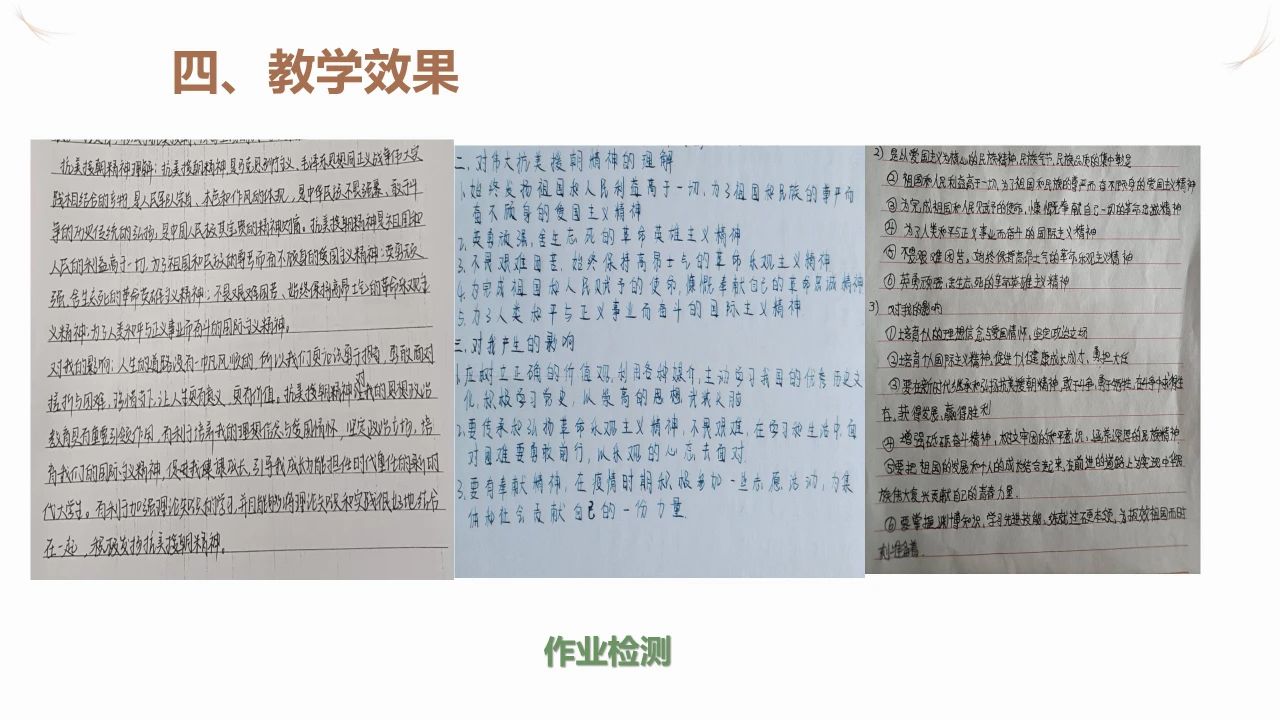 四、教学效果
抗美援朝精神理解：抗美援朝精神是马克思列宁主义、毛泽东思想同正义战争伟大实
践相结合的产物，是人民军队宗旨、本色和作风的体现，是中华民族不畏强暴、敢于斗
争的历史传统的弘扬，是中国人民极其宝贵的精神财富。抗美援朝精神是祖国和
人民的利益高于一切，为了祖国和民族的尊严而奋不顾身的爱国主义精神；英勇顽
强、舍生忘死的革命英雄主义精神；不畏艰难困苦、始终保持高昂士气的革命乐观主
义精神；为了人类和平与正义事业而奋斗的国际主义精神。
对我的影响：人生的道路没有一帆风顺的，所以我们更应该勇于拼搏，勇敢面对
挫折与困难，
教育具有重要引领作用，有利于培养我的理想信念与爱国情怀，坚定政治立场，培
育我们的国际主义精神，促进我健康成长，引导我成长为能担任时代重任的新时
代大学生。有利于加强理论知识的学习，并且能够将理论知识和实践很好地结合
在一起，积极发扬抗美援朝精神。
二、对伟大抗美援朝精神的理解
1.始终发扬祖国和人民利益高于一切，为了祖国和民族的尊严而
奋不顾身的爱国主义精神
2.英勇顽强，舍生忘死的革命英雄主义精神
3.不畏艰难困苦，始终保持高昂士气的革命乐观主义精神
4.为完成祖国和人民赋予的使命，慷慨奉献自己的革命忠诚精神
5.为了人类和平与正义事业而奋斗的国际主义精神
三.对我产生的影响
1.应树立正确的价值观，利用各种媒介，主动学习我国的优秀历史文
化，积极学习党史，以崇高的思想武装头脑
2.要传承和弘扬革命乐观主义精神，不畏艰难，在学习和生活中，面
对困难要勇敢前行，以乐观的心态去面对
3.要有奉献精神，在疫情时期积极参加一些志愿活动，为集
体和社会贡献自己的一份力量.
2）是以爱国主义为核心的民族精神，民族气节，民族品质的集中彰显
② 祖国和人民利益高于一切，为了祖国和民族的尊严而奋不顾身的爱国主义精神
③ 为完成祖国和人民赋予的使命，慷慨奉献自己一切的革命忠诚精神
④ 为了人类和平与正义事业而奋斗的国际主义精神
⑤ 不畏艰难困苦，始终保持高昂士气的革命乐观主义精神
⑥ 英勇顽强，舍生忘死的革命英雄主义精神
3）对我的影响
①培育个人的理想信念与爱国情怀，坚定政治立场
②培育个人国际主义精神，促进个人健康成长成才，勇担大任
③要在新时代继承和弘扬抗美援朝精神，敢于斗争，善于斗争，在斗争中求得生
存，获得发展，赢得胜利
④ 增强砥砺奋斗精神，
⑤要把祖国的发展和个人的成长结合起来，在前进的道路上为实现中华民
族伟大复兴贡献自己的青春力量.
⑥ 要掌握渊博知识，学习先进技能，练就过硬本领，为报效祖国而时
刻准备着.
作业检测